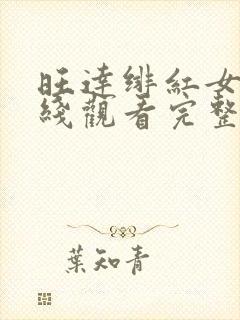 旺達緋紅女
綫觀看完整
葉知青